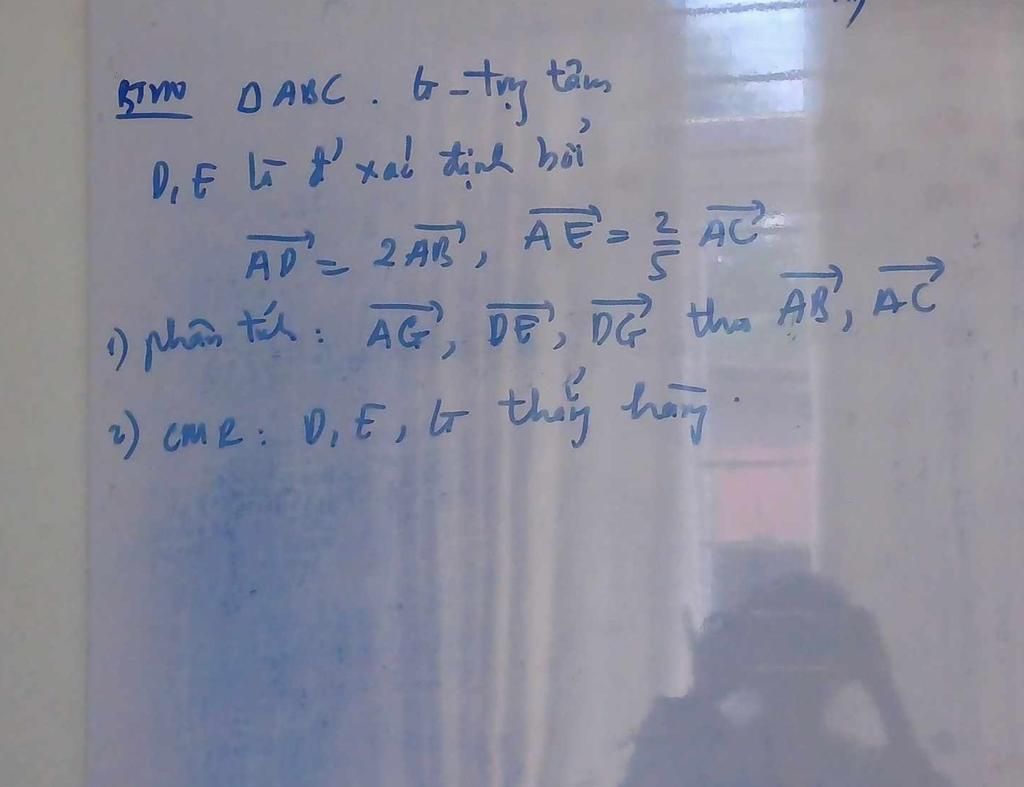 BTVN ΔABC. G - trg tâm,
D, E là đ' xác định bởi
$\overrightarrow{AD} = 2\overrightarrow{AB}$, $\overrightarrow{AE} = \frac{2}{5}\overrightarrow{AC}$
1) phân tích: $\overrightarrow{AG}$, $\overrightarrow{DE}$, $\overrightarrow{DG}$ theo $\overrightarrow{AB}$, $\overrightarrow{AC}$
2) CMR: D, E, G thẳng hàng.